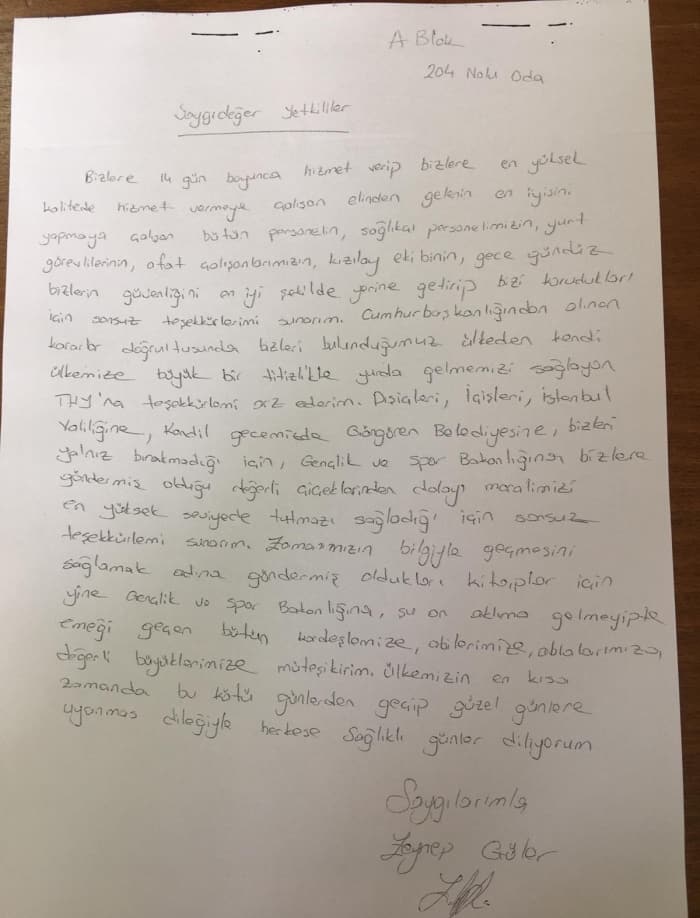 A Blok
204 Nolu Oda
Saygıdeğer Yetkililer
Bizlere 14 gün boyunca hizmet verip bizlere en yüksek
kalitede hizmet vermeye çalışan elinden gelenin en iyisini
yapmaya çalışan bütün personelin, sağlıkal personelimizin, yurt
görevlilerinin, afat çalışanlarımızın, kızılay ekibinin, gece gündüz
bizlerin güvenliğini en iyi şekilde yerine getirip bizi korudukları
için sonsuz teşekkürlerimi sunarım. Cumhurbaşkanlığından alınan
kararlar doğrultusunda bizleri bulunduğumuz ülkeden kendi
ülkemize büyük bir titizlikle yurda gelmemizi sağlayan
THY'na teşekkürlemi arz ederim. Dışişleri, İçişleri, İstanbul
Valiliğine, Kandil gecemizde Güngören Belediyesine, bizleri
yalnız bırakmadığı için, Gençlik ve Spor Bakanlığının bizlere
göndermiş olduğu değerli çiçeklerinden dolayı moralimizi
en yüksek seviyede tutmazı sağladığı için sonsuz
teşekkürlemi sunarım. Zamanımızın bilgiyle geçmesini
sağlamak adına göndermiş oldukları kitaplar için
yine Gençlik ve Spor Bakanlığına, şu an aklıma gelmeyipte
emeği geçen bütün kardeşlemize, abilerimize, ablalarımıza,
değerli büyüklerimize müteşikirim. Ülkemizin en kısa
zamanda bu kötü günlerden geçip güzel günlere
uyanması dileğiyle herkese Sağlıklı günler diliyorum
Saygılarımla
Zeynep Güler